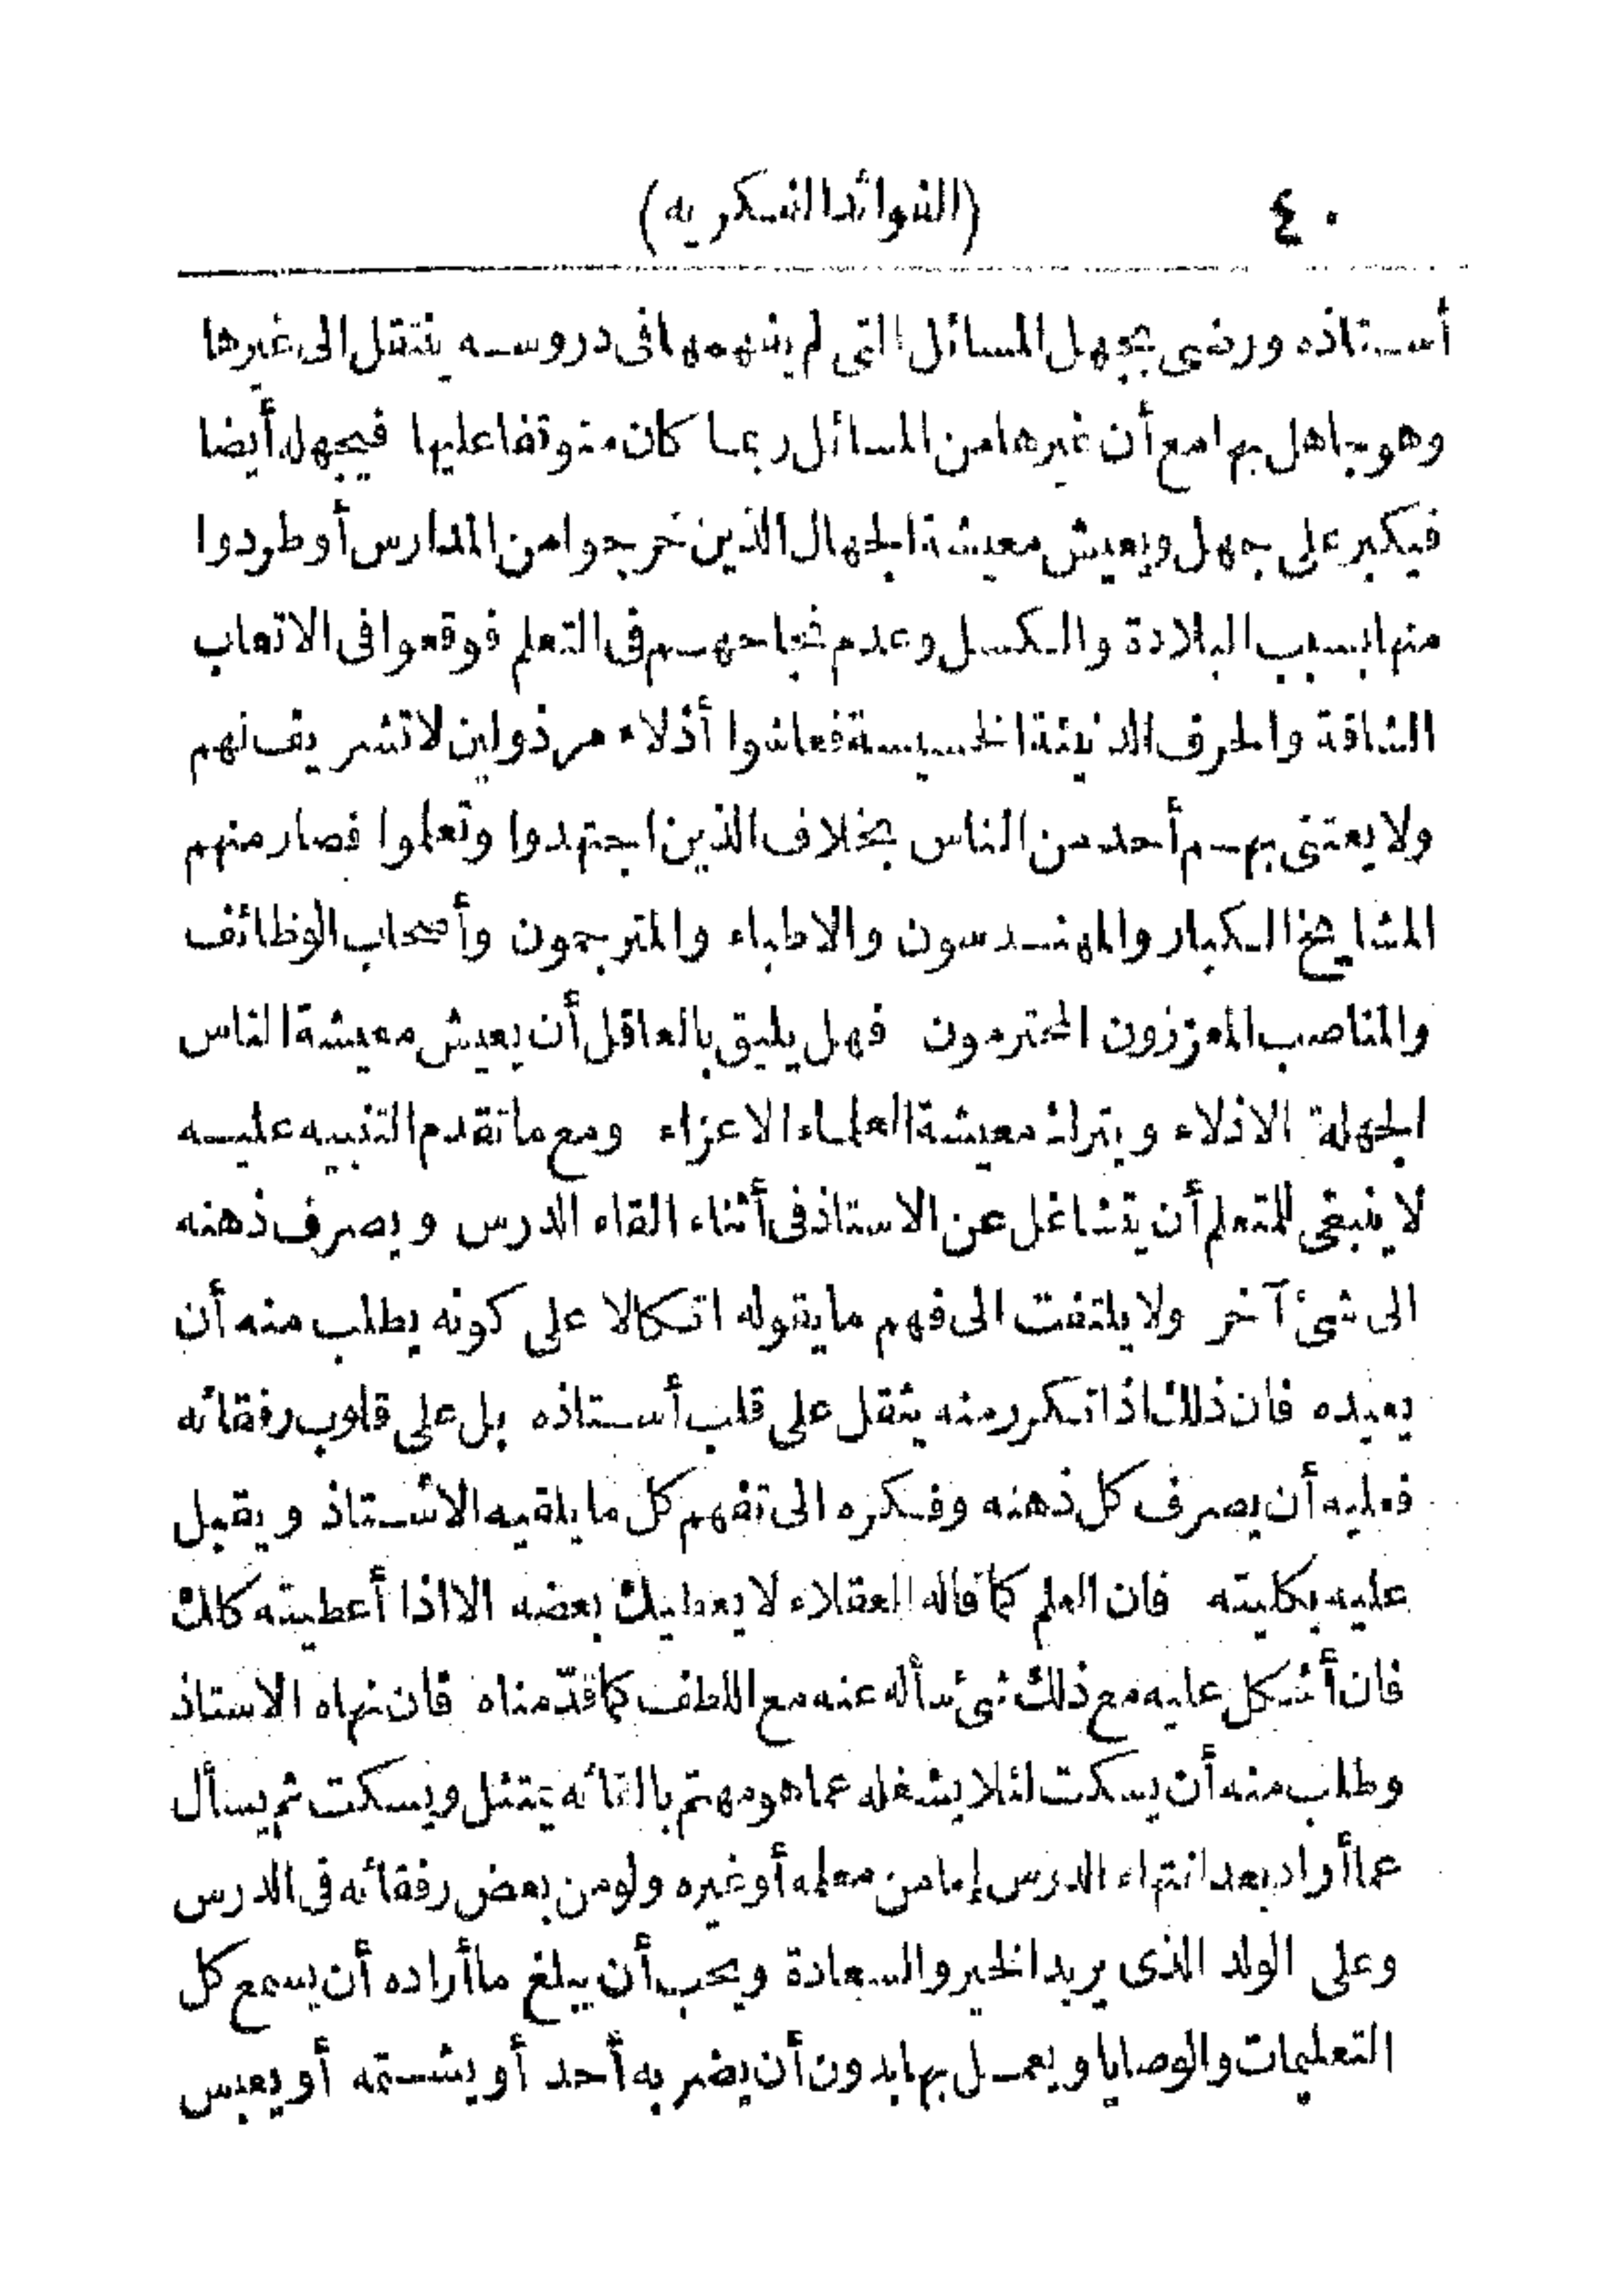 ٤٠
(الفوائد الفكريه)
أستاذه ورضى بجهل المسائل التى لم يفهمها فى دروسه ينتقل الى غيرها
وهو جاهل بها مع أن غيرها من المسائل ربما كان متوقفا عليها فيجهله أيضا
فيكبر على جهل ويعيش معيشة الجهال الذين خرجوا من المدارس أو طردوا
منها بسبب البلادة والكسل وعدم نجاحهم فى التعلم فوقعوا فى الاتعاب
الشاقة والحرف الدنيئة الخسيسة فعاشوا أذلاء مرذولين لا تشريف لهم
ولا يعتنى بهم أحد من الناس بخلاف الذين اجتهدوا وتعلموا فصار منهم
المشايخ الكبار والمهندسون والاطباء والمترجمون وأصحاب الوظائف
والمناصب المعززون المحترمون فهل يليق بالعاقل أن يعيش معيشة الناس
الجهلة الاذلاء ويترك معيشة العلماء الاعزاء ومع ما تقدم التنبيه عليه
لا ينبغى للمتعلم أن يتشاغل عن الاستاذ فى أثناء القاء الدرس ويصرف ذهنه
الى شئ آخر ولا يلتفت الى فهم ما يقوله اتكالا على كونه يطلب منه أن
يعيده فان ذلك اذا تكرر منه يثقل على قلب أستاذه بل على قلوب رفقائه
فعليه أن يصرف كل ذهنه وفكره الى تفهم كل ما يلقيه الأستاذ ويقبل
عليه بكليته فان العلم كما قاله العقلاء لا يعطيك بعضه الا اذا أعطيته كلك
فان أشكل عليه مع ذلك شئ سأله عنه مع اللطف كما قدّمناه فان نهاه الاستاذ
وطلب منه أن يسكت لئلا يشغله عما هو مهتم بالقائه يمتثل ويسكت ثم يسأل
عما أراد بعد انتهاء الدرس إما من معلمه أو غيره ولو من بعض رفقائه فى الدرس
وعلى الولد الذى يريد الخير والسعادة ويحب أن يبلغ ما أراده أن يسمع كل
التعليمات والوصايا ويعمل بها بدون أن يضربه أحد أو يشتمه أو يعبس